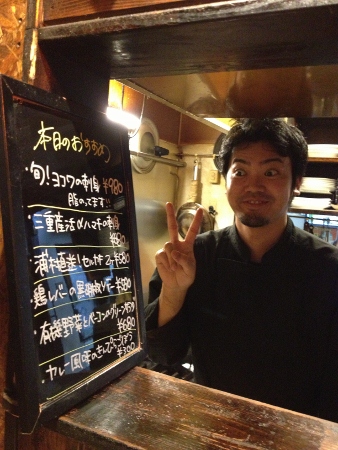 本日のおすすめ
・旬!ヨコワの刺身 ¥980
脂のってます!!
・三重産活〆ハマチの刺身
¥680
・浦村直送!セルカキ 2ヶ ¥580
・鶏レバーの黒胡椒ソテー ¥580
・有機野菜とベーコンのグリーンサラダ
¥680
・カレー風味のきんぴらごぼう
¥300